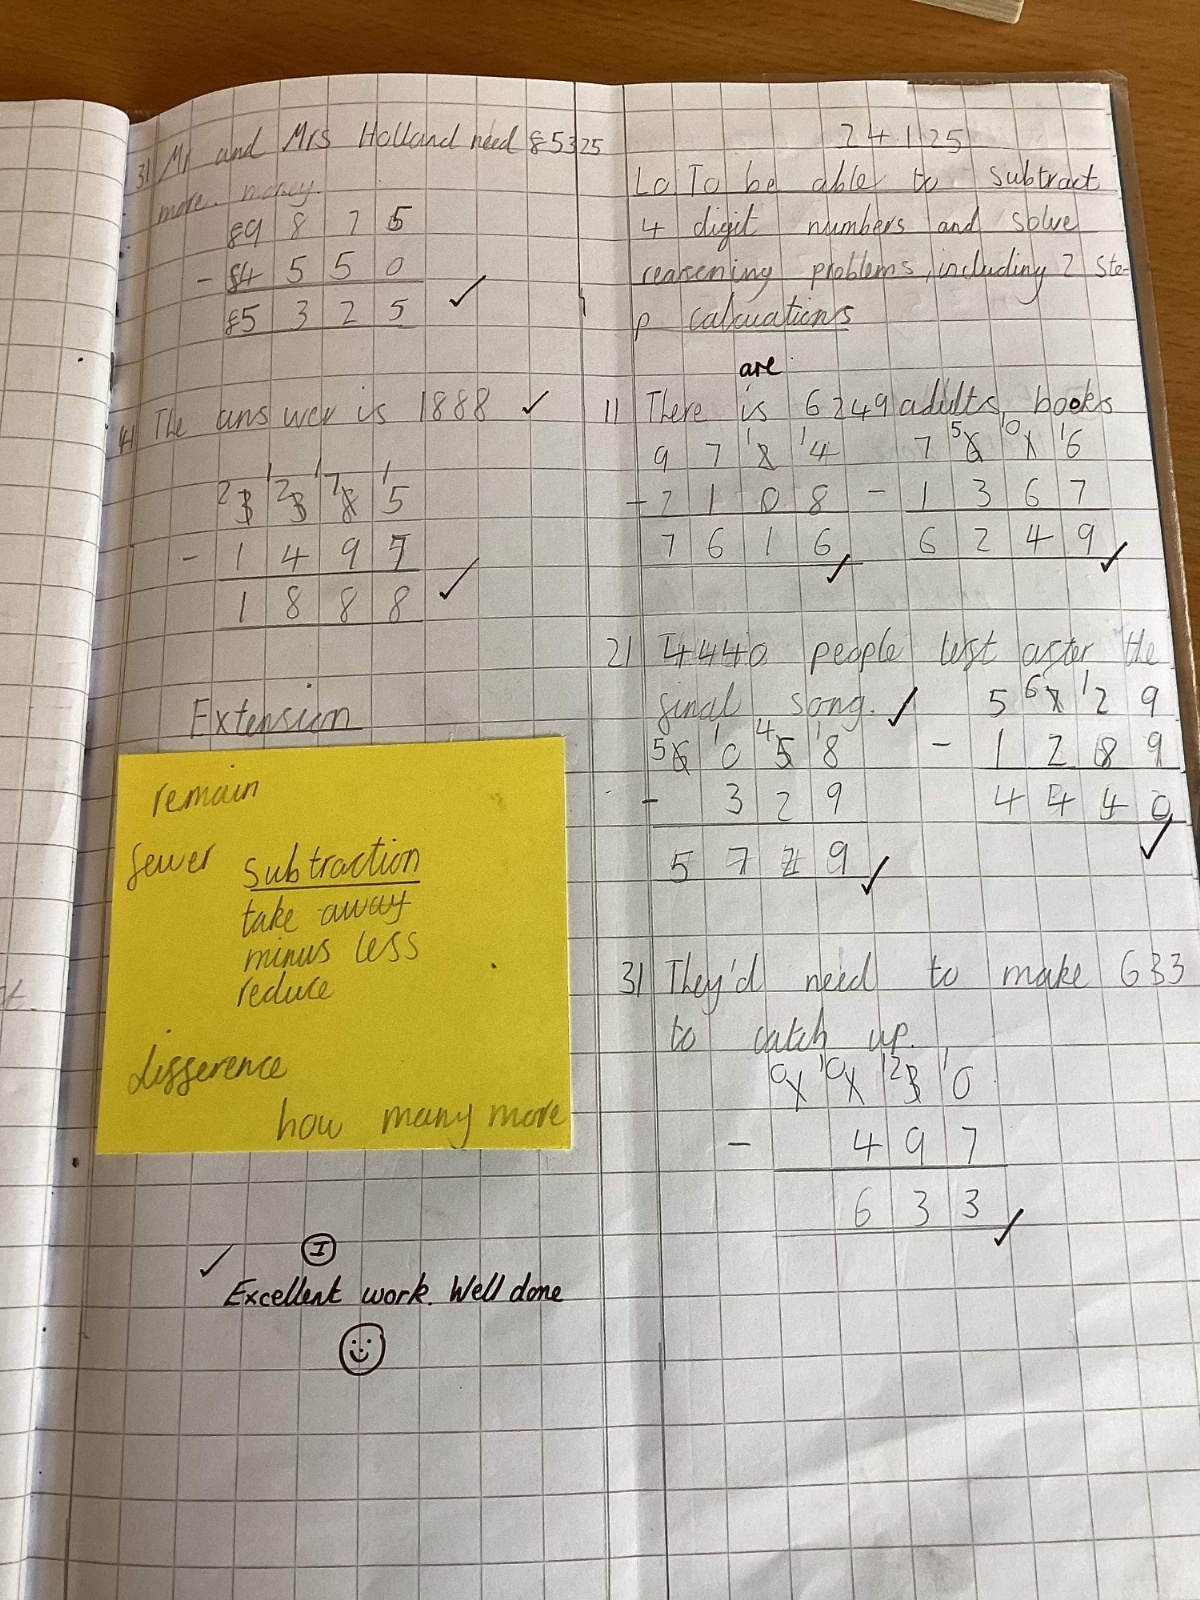 3) Mr and Mrs Holland need £5325
more money.
£9 8 7 5
- £4 5 5 0
£5 3 2 5 ✓
4) The answer is 1888 ✓
²3 ¹²3 ¹⁷8 ¹5
- 1 4 9 7
1 8 8 8 ✓
Extension
remain
fewer
Subtraction
take away
minus less
reduce
difference
how many more
✓ I
Excellent work. Well done
24.1.25
Lo To be able to subtract
4 digit numbers and solve
reasoning problems, including 2 ste-
p calcuations
are
1) There is 6249 adults books
9 7 ¹2 ¹4
- 2 1 0 8
7 6 1 6 ✓
7 ⁵6 ¹⁰1 ¹6
- 1 3 6 7
6 2 4 9 ✓
2) 4440 people left after the
final song. ✓
⁵6 ¹0 ⁴5 ¹8
- 3 2 9
5 7 2 9 ✓
5 ⁶7 ¹2 9
- 1 2 8 9
4 4 4 0 ✓
3) They'd need to make 633
to catch up.
⁰1 ¹⁰1 ¹²3 ¹0
- 4 9 7
6 3 3 ✓